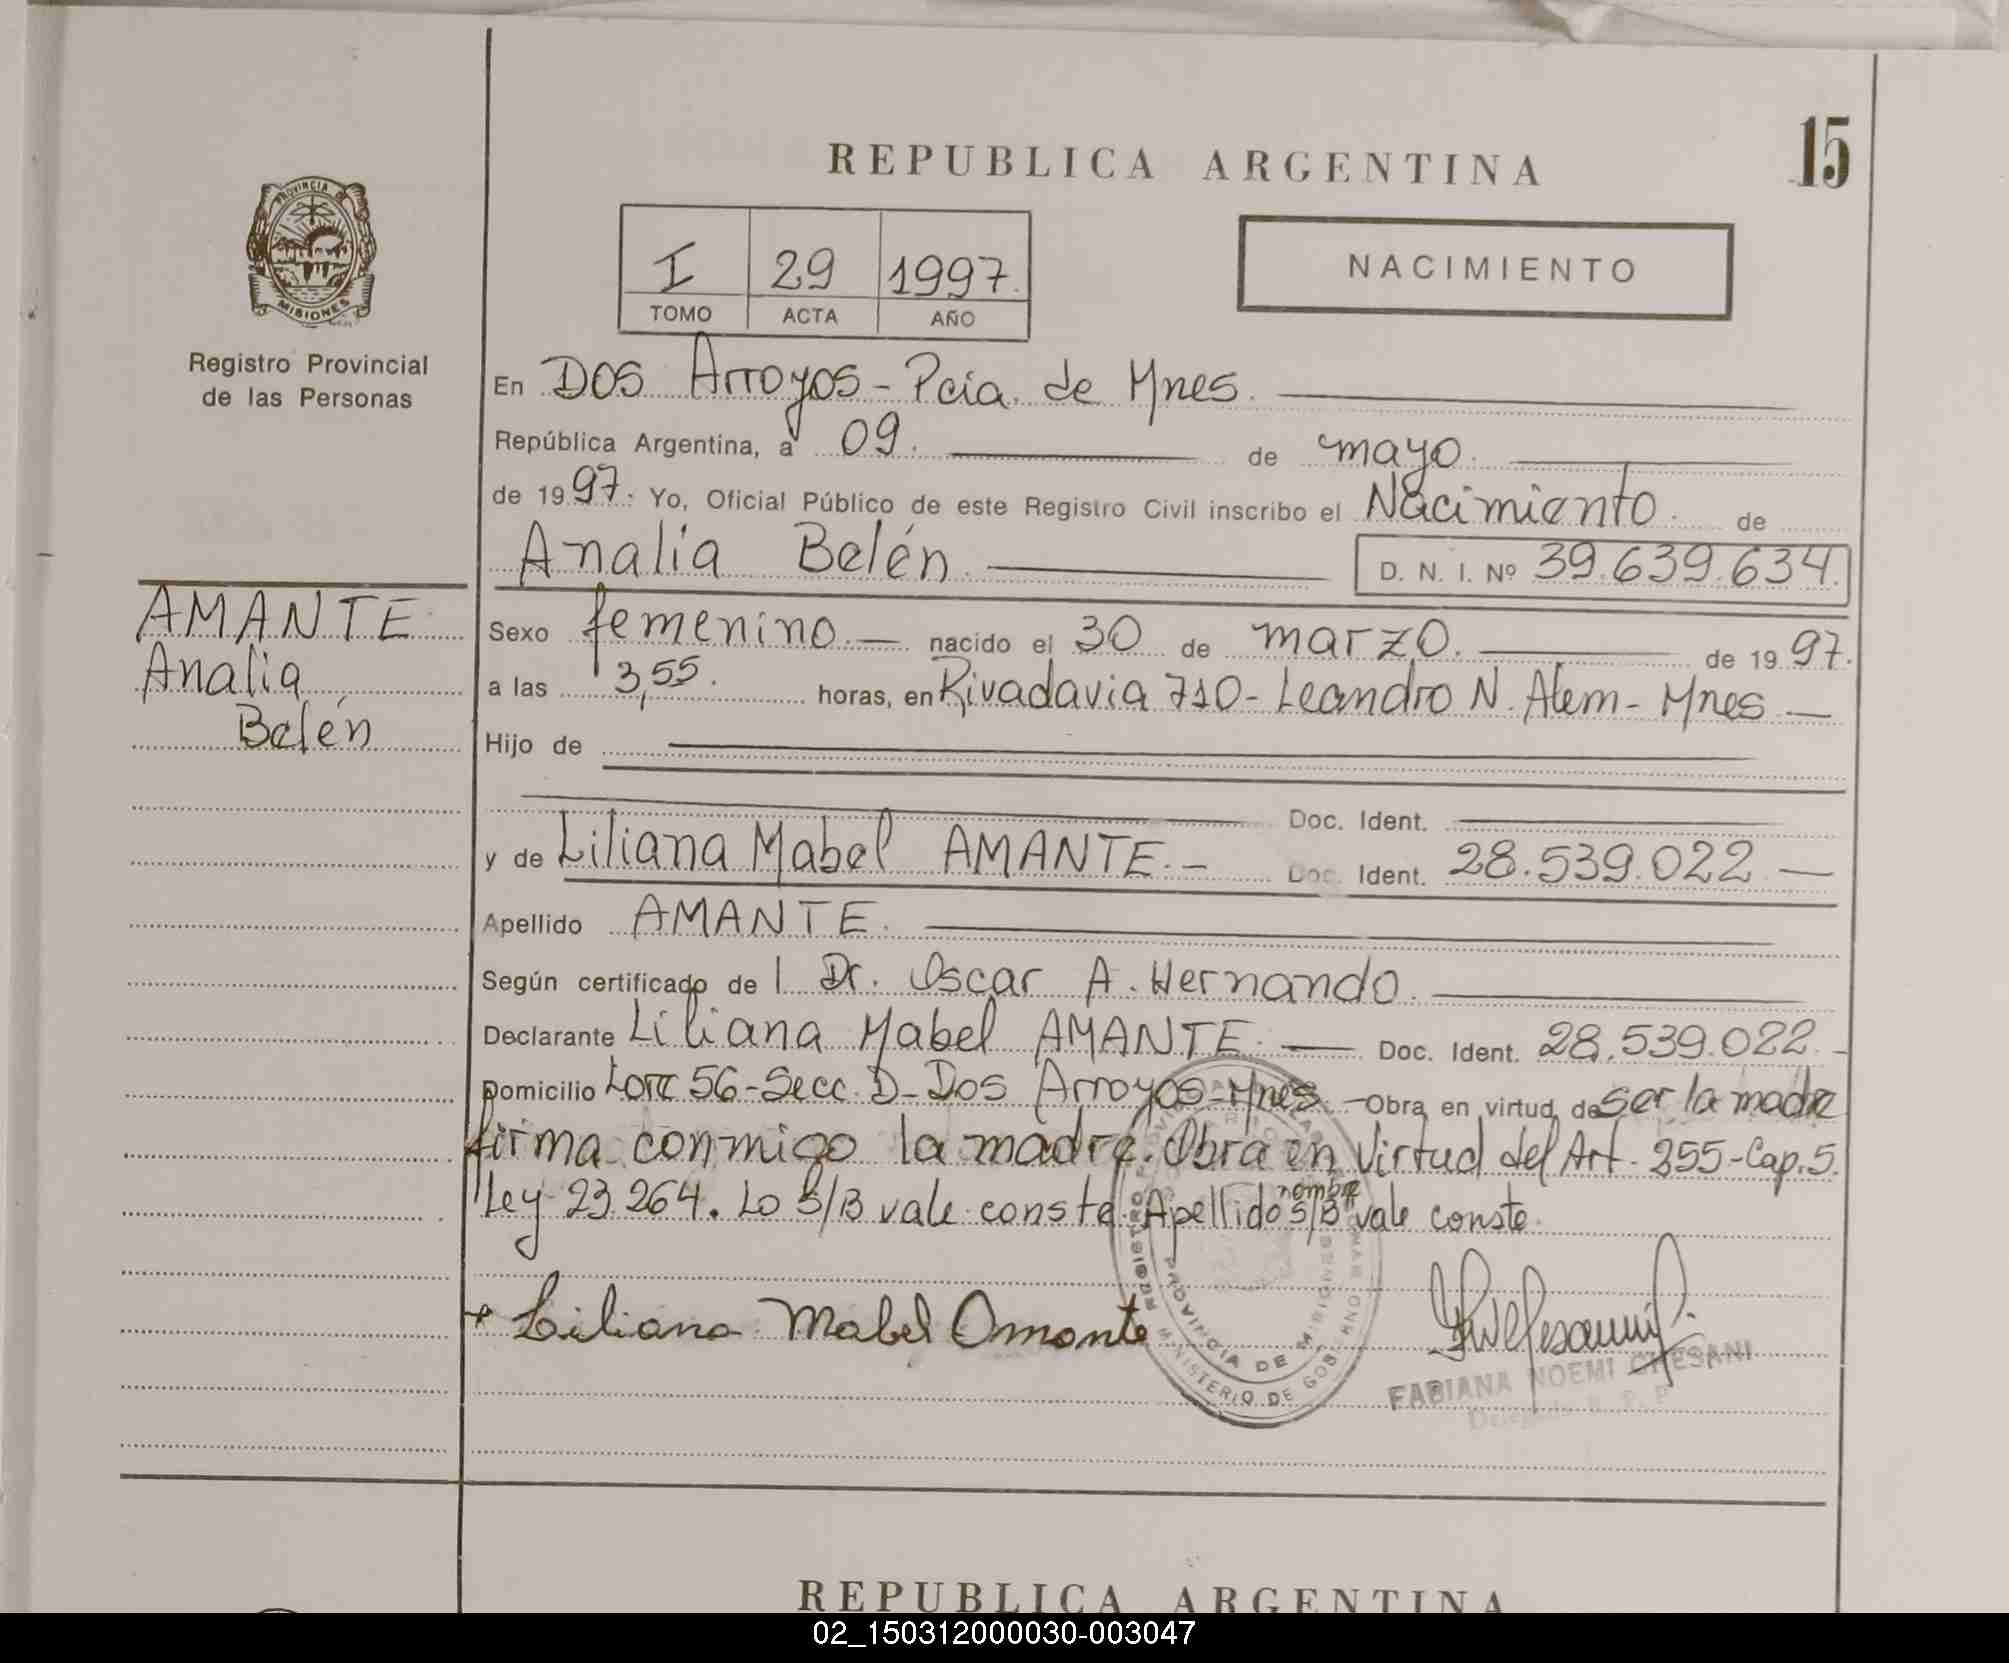 REPUBLICA ARGENTINA
15
PROVINCIA
MISIONES
Registro Provincial
de las Personas
I 29 1997.
TOMO ACTA AÑO
NACIMIENTO
En Dos Arroyos - Pcia. de Mnes.
República Argentina, a 09. de mayo.
de 1997. Yo, Oficial Público de este Registro Civil inscribo el Nacimiento. de
Analía Belén. D. N. I. Nº 39.639.634.
AMANTE
Analía
Belén
Sexo femenino. — nacido el 30 de marzo. de 1997.
a las 3,55. horas, en Rivadavia 710 - Leandro N. Alem - Mnes —
Hijo de
Doc. Ident.
y de Liliana Mabel AMANTE. - Doc. Ident. 28.539.022 —
Apellido AMANTE.
Según certificado de l Dr. Oscar A. Hernando.
Declarante Liliana Mabel AMANTE. — Doc. Ident. 28.539.022. -
Domicilio Lote 56 - Secc. D - Dos Arroyos - Mnes. - Obra en virtud de ser la madre
firma conmigo la madre. Obra en virtud del Art. 255 - Cap. 5.
Ley 23.264. Lo S/B vale conste. Apellido nombre S/B vale conste.
Liliana Mabel Amante
REGISTRO
PROVINCIA DE MISIONES
MINISTERIO DE GOBIERNO
FABIANA NOEMI GHESANI
REPUBLICA ARGENTINA
02_150312000030-003047